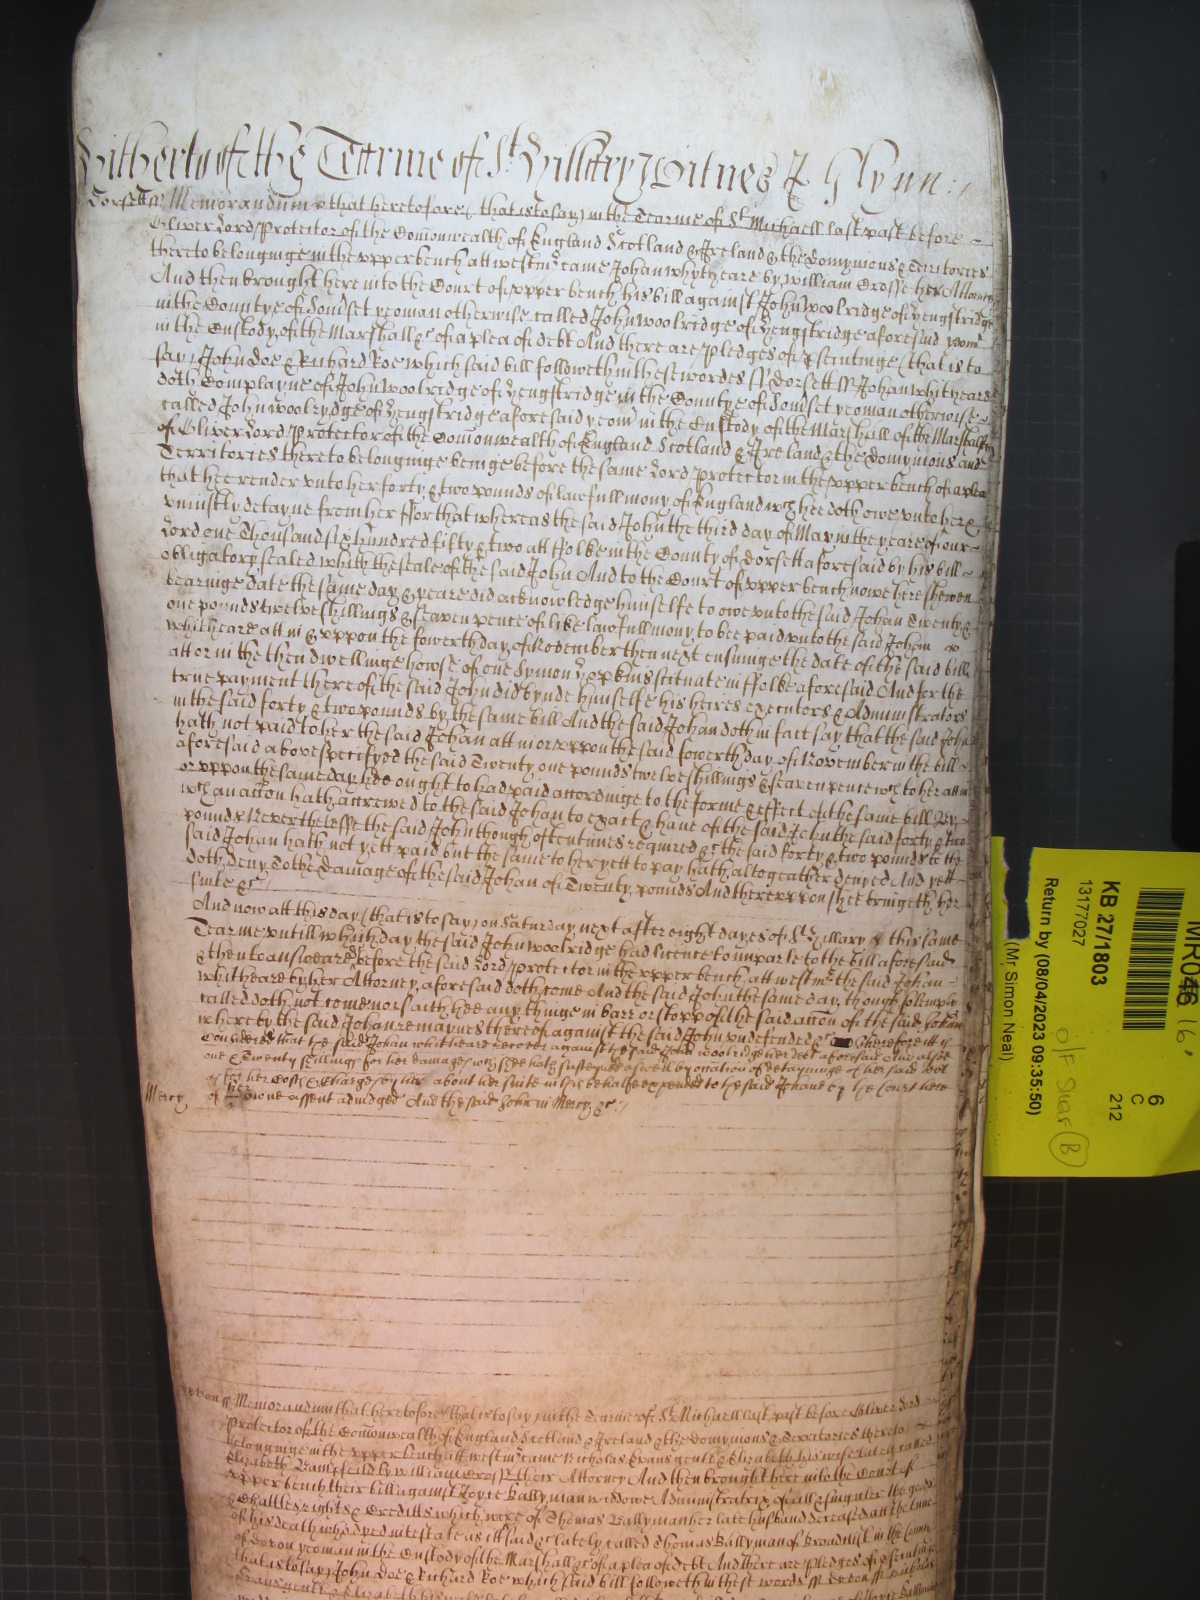 Hitherto of the Tearme of St Hillary Witnes J Glynn
Dorsett ss Memorandum that heretofore (that is to say) in the Tearme of St Michaell last past before
Oliver Lord Protector of the Comonwealth of England Scotland & Ireland & the Domynions & Territories
thereto belonginge in the upper bench att westmr came Johan whityeare by William Crosse her Attorney
And then brought here into the Court of upper bench his bill against John Woolridge of Hengstridge
in the Countye of Somset yeoman otherwise called John woolridge of Hengstridge aforesaid yeom
in the Custody of the Marshall &c of a plea of debt And there are pledges of psecutinge (that is to
say) John Doe & Richard Roe which said bill followeth in these wordes ss Dorsett ss Johan whityeare
doth Complayne of John woolridge of Hengstridge in the Countye of Somset yeoman otherwise
called John woolrydge of Hengstridge aforesaid yeom in the Custody of the Marshall of the Marshalsey
of Oliver Lord Protector of the Comonwealth of England Scotland & Ireland & the Domynions and
Territories thereto belonginge beinge before the same Lord Protector in the upper bench of a plea
that hee render unto her forty & two pounds of lawfull mony of England wch hee doth owe unto her &
uniustly detayne from her ffor that whereas the said John the third day of May in the yeare of our
Lord one Thousand six hundred fifty & two att ffolke in the County of Dorsett aforesaid by his bill
obligatory sealed with the seale of the said John And to the Court of upper bench nowe here shewen
bearinge date the same day & yeare did acknowledge himselfe to owe unto the said Johan Twenty &
one pounds twelve shillings & seaven pence of like lawfull mony to bee paid unto the said Johan
whityeare att in & uppon the fowerth day of November then next ensuinge the date of the said bill
att or in the then dwellinge howse of one Symon Hopkins scituate in ffolke aforesaid And for the
true payment thereof the said John did bynde himselfe his heires executors & Administrators
in the said forty & two pounds by the same bill And the said Johan doth in fact say that the said John
hath not paid to her the said Johan att in or uppon the said fowerth day of November in the bill
aforesaid above specifyed the said Twenty one pounds twelve shillings & seaven pence wch to her att in
or uppon the same day hee ought to had paid accordinge to the forme & effect of the same bill By
wch an action hath accrewed to the said Johan to exact & have of the said John the said forty & two
pounds Neverthelesse the said John though oftentimes required &c the said forty & two pounds to the
said Johan hath not yett paid but the same to her yett to pay hath altogeather denyed And yett
doth deny To the Damage of the said Johan of Twenty pounds And thereuppon shee bringeth her
suite &c
And now att this day (that is to say) on Saturday next after eight dayes of St Hillary this same
Tearme untill which day the said John woolridge had licence to imparle to the bill aforesaid
& then to answeare before the said Lord Protector in the upper bench att westmr the said Johan
whityeare by her Attorney aforesaid doth come And the said John the same day though solemply
called doth not come nor saith hee any thinge in barr or stopp of the said action of the said Johan
whereby the said Johan remaynes thereof against the said John undefended &c Therefore itt is
Considered that the said Johan whityeare recover against the said John woolridge her debt aforesaid And alsoe
one & Twenty shillings for her damages wch shee hath susteyned aswell by occation of detayninge of her said debt
as for her Costs & Charges by her about her suite in his behalfe expended to the said Johane by the Court here
Mercy of her owne assent adiudged And the said John in Mercy &c
Devon ss Memorandum that heretofore (that is to say) in the Tearme of St Michaell last past before Oliver Lord
Protector of the Comonwealth of England Scotland & Ireland & the Domynions & Territories thereto
belonginge in the upper bench att westmr came Nicholas Evans gent & Elizabeth his wife lately called
Elizabeth Bampfeild by William Crosse their Attorney And then brought here into the Court of
upper bench their bill against Joyce Ballyman widdowe Administratrix of all & singuler the goods
Chattles rights & Creditts which were of Thomas Ballyman her late husband deceased att the tyme
of his death who dyed intestate as itt is said & lately called Thomas Ballyman of Broadnist in the County
of Devon yeoman in the Custody of the Marshall &c of a plea of debt And there are pledges of psecutinge
that is to say John Doe & Richard Roe which said bill followeth in these words ss Devon ss Nicholas
Evans gent & Elizabeth his wife
MR046
KB 27/1803
13177027
Return by (08/04/2023 09:35:50)
(Mr Simon Neal)
6
C
212
O/F Shar (B)
16'